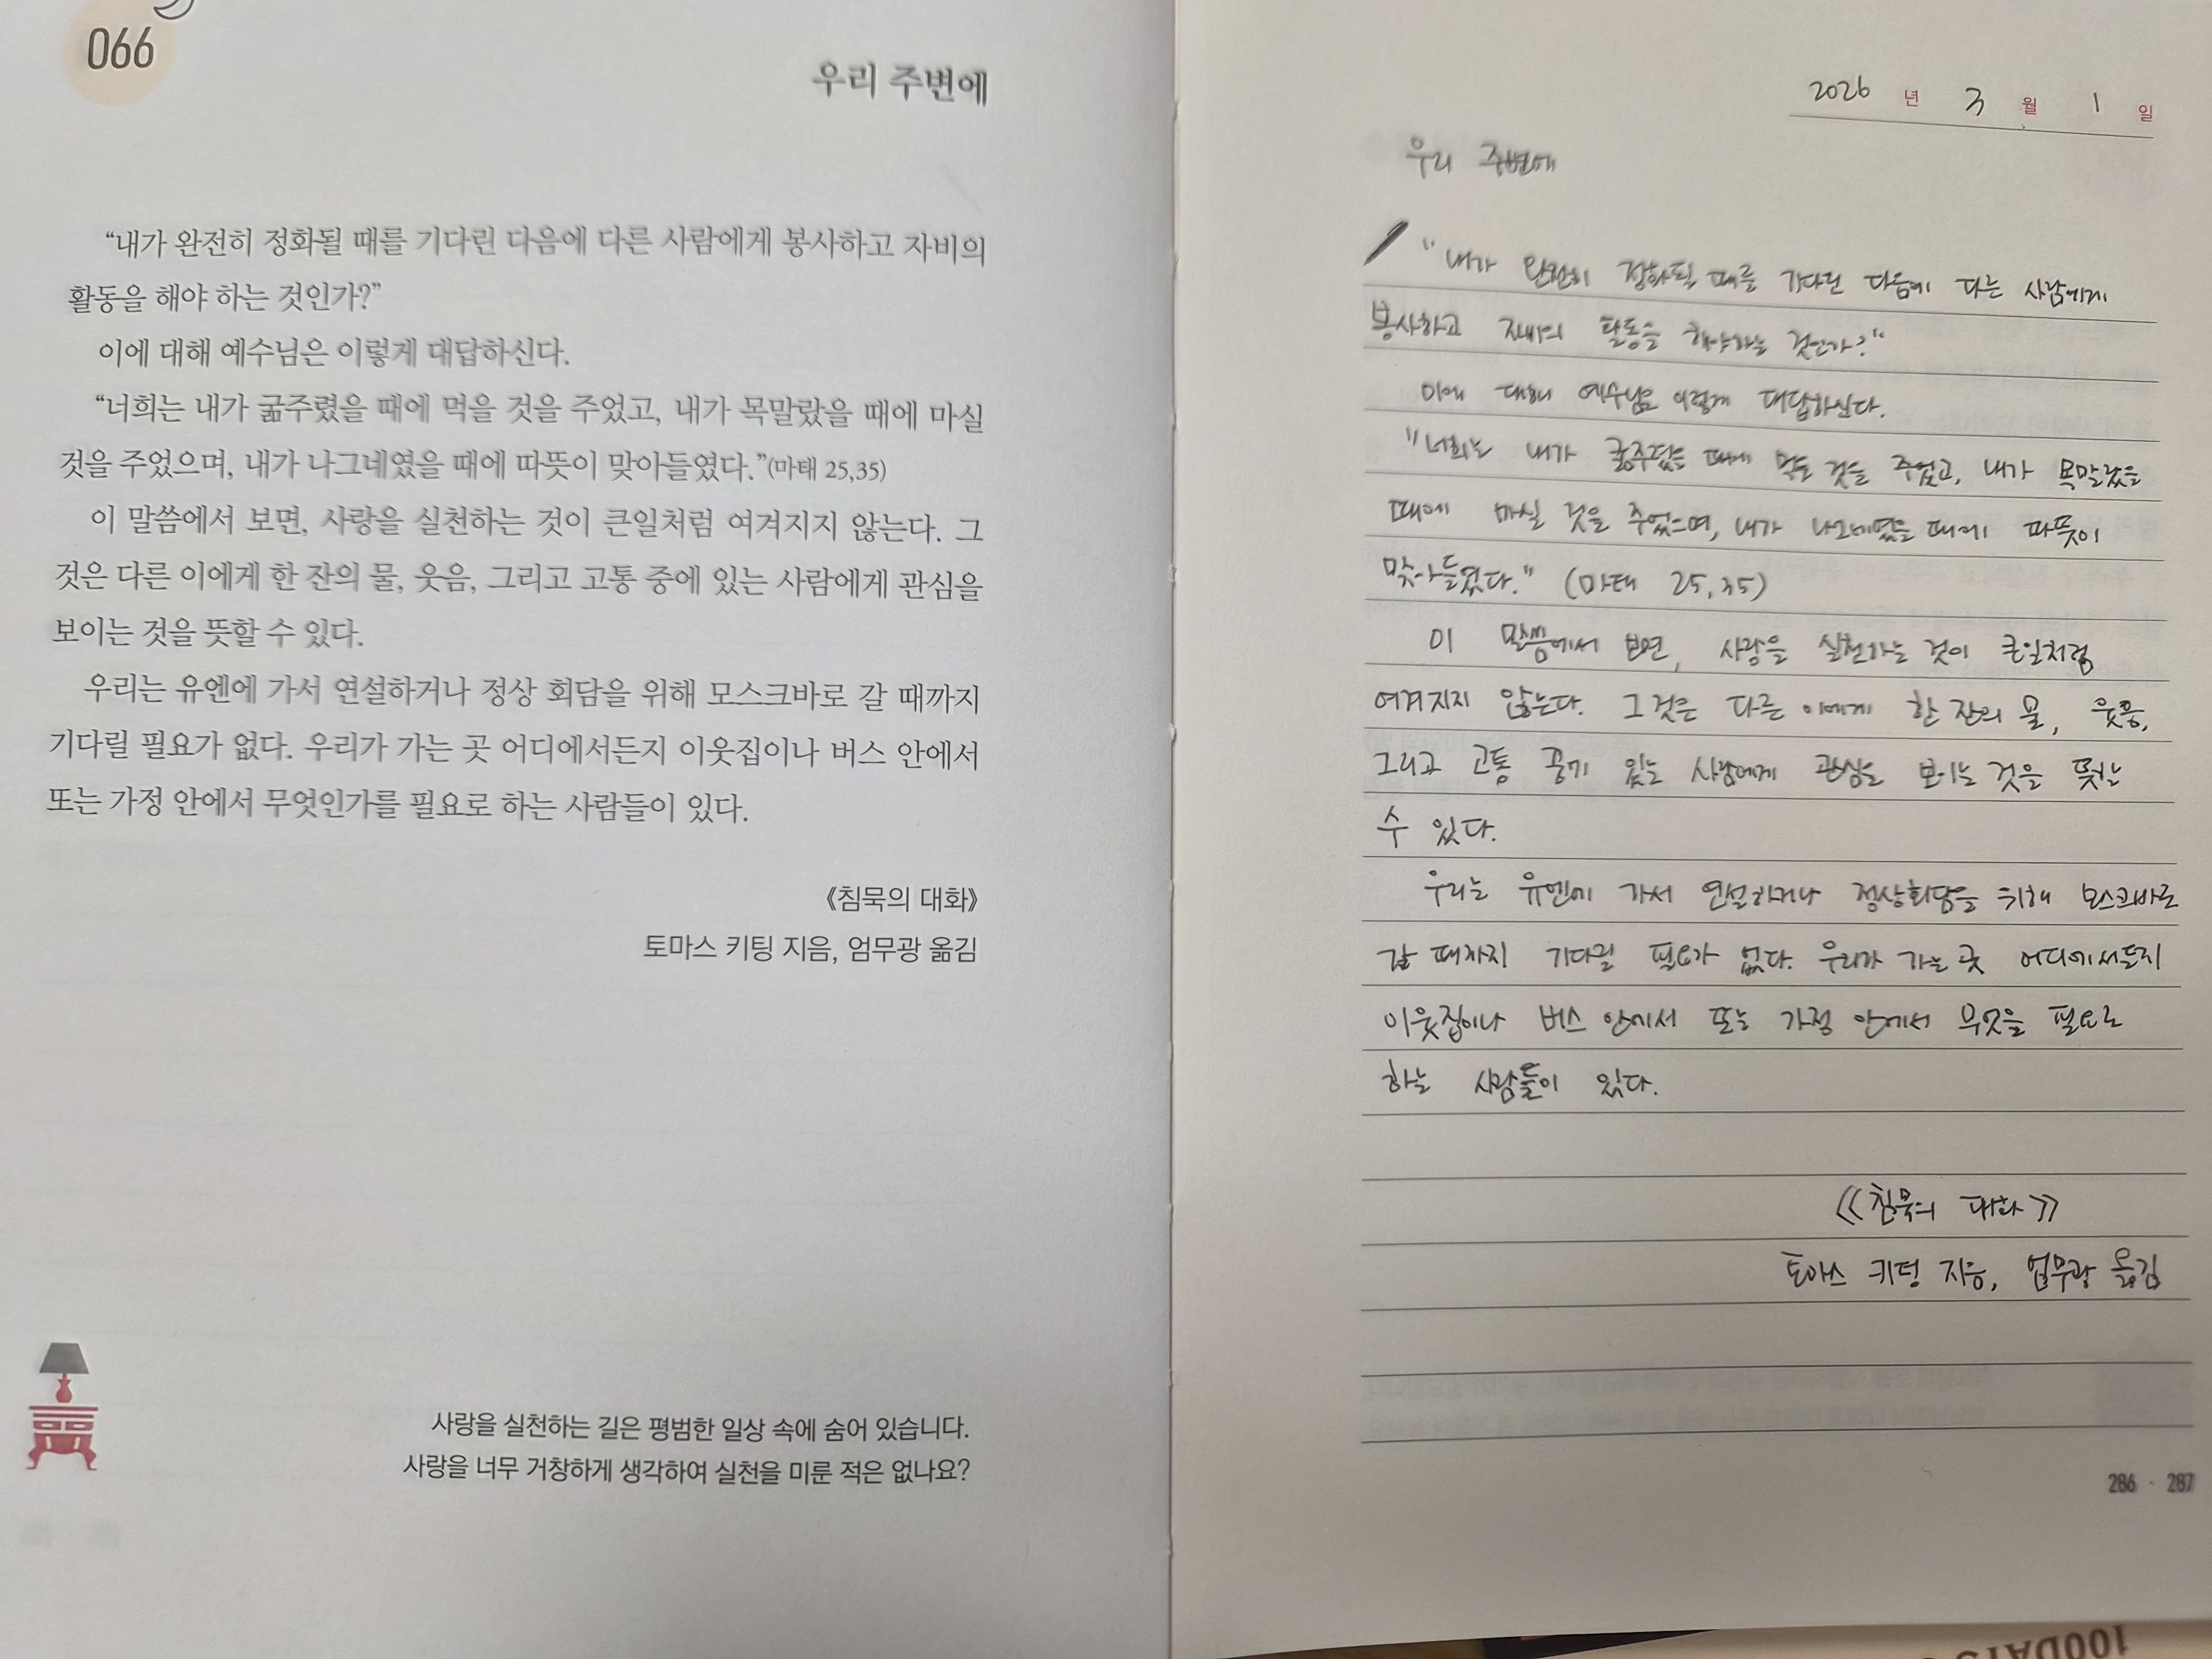 066
우리 주변에
“내가 완전히 정화될 때를 기다린 다음에 다른 사람에게 봉사하고 자비의
활동을 해야 하는 것인가?”
이에 대해 예수님은 이렇게 대답하신다.
“너희는 내가 굶주렸을 때에 먹을 것을 주었고, 내가 목말랐을 때에 마실
것을 주었으며, 내가 나그네였을 때에 따뜻이 맞아들였다.”(마태 25,35)
이 말씀에서 보면, 사랑을 실천하는 것이 큰일처럼 여겨지지 않는다. 그
것은 다른 이에게 한 잔의 물, 웃음, 그리고 고통 중에 있는 사람에게 관심을
보이는 것을 뜻할 수 있다.
우리는 유엔에 가서 연설하거나 정상 회담을 위해 모스크바로 갈 때까지
기다릴 필요가 없다. 우리가 가는 곳 어디에서든지 이웃집이나 버스 안에서
또는 가정 안에서 무엇인가를 필요로 하는 사람들이 있다.
《침묵의 대화》
토마스 키팅 지음, 엄무광 옮김
사랑을 실천하는 길은 평범한 일상 속에 숨어 있습니다.
사랑을 너무 거창하게 생각하여 실천을 미룬 적은 없나요?
2026 년 3 월 1 일
우리 주변에
"내가 완전히 정화될 때를 기다린 다음에 다른 사람에게
봉사하고 자비의 활동을 해야하는 것인가?"
이에 대해 예수님은 이렇게 대답하신다.
"너희는 내가 굶주렸을 때에 먹을 것을 주었고, 내가 목말랐을
때에 마실 것을 주었으며, 내가 나그네였을 때에 따뜻이
맞아들였다." (마태 25,35)
이 말씀에서 보면, 사랑을 실천하는 것이 큰일처럼
여겨지지 않는다. 그것은 다른 이에게 한 잔의 물, 웃음,
그리고 고통 있는 사람에게 관심을 보이는 것을
수 있다.
우리는 유엔에 가서 연설하거나 정상회담을 위해 모스크바로
갈 때까지 기다릴 필요가 없다. 우리가 가는 곳 어디에서든지
이웃집이나 버스 안에서 또는 가정 안에서 무엇을 필요로
하는 사람들이 있다.
《침묵의 대화》
토마스 키팅 지음, 엄무광 옮김
286 · 287
100DAYS